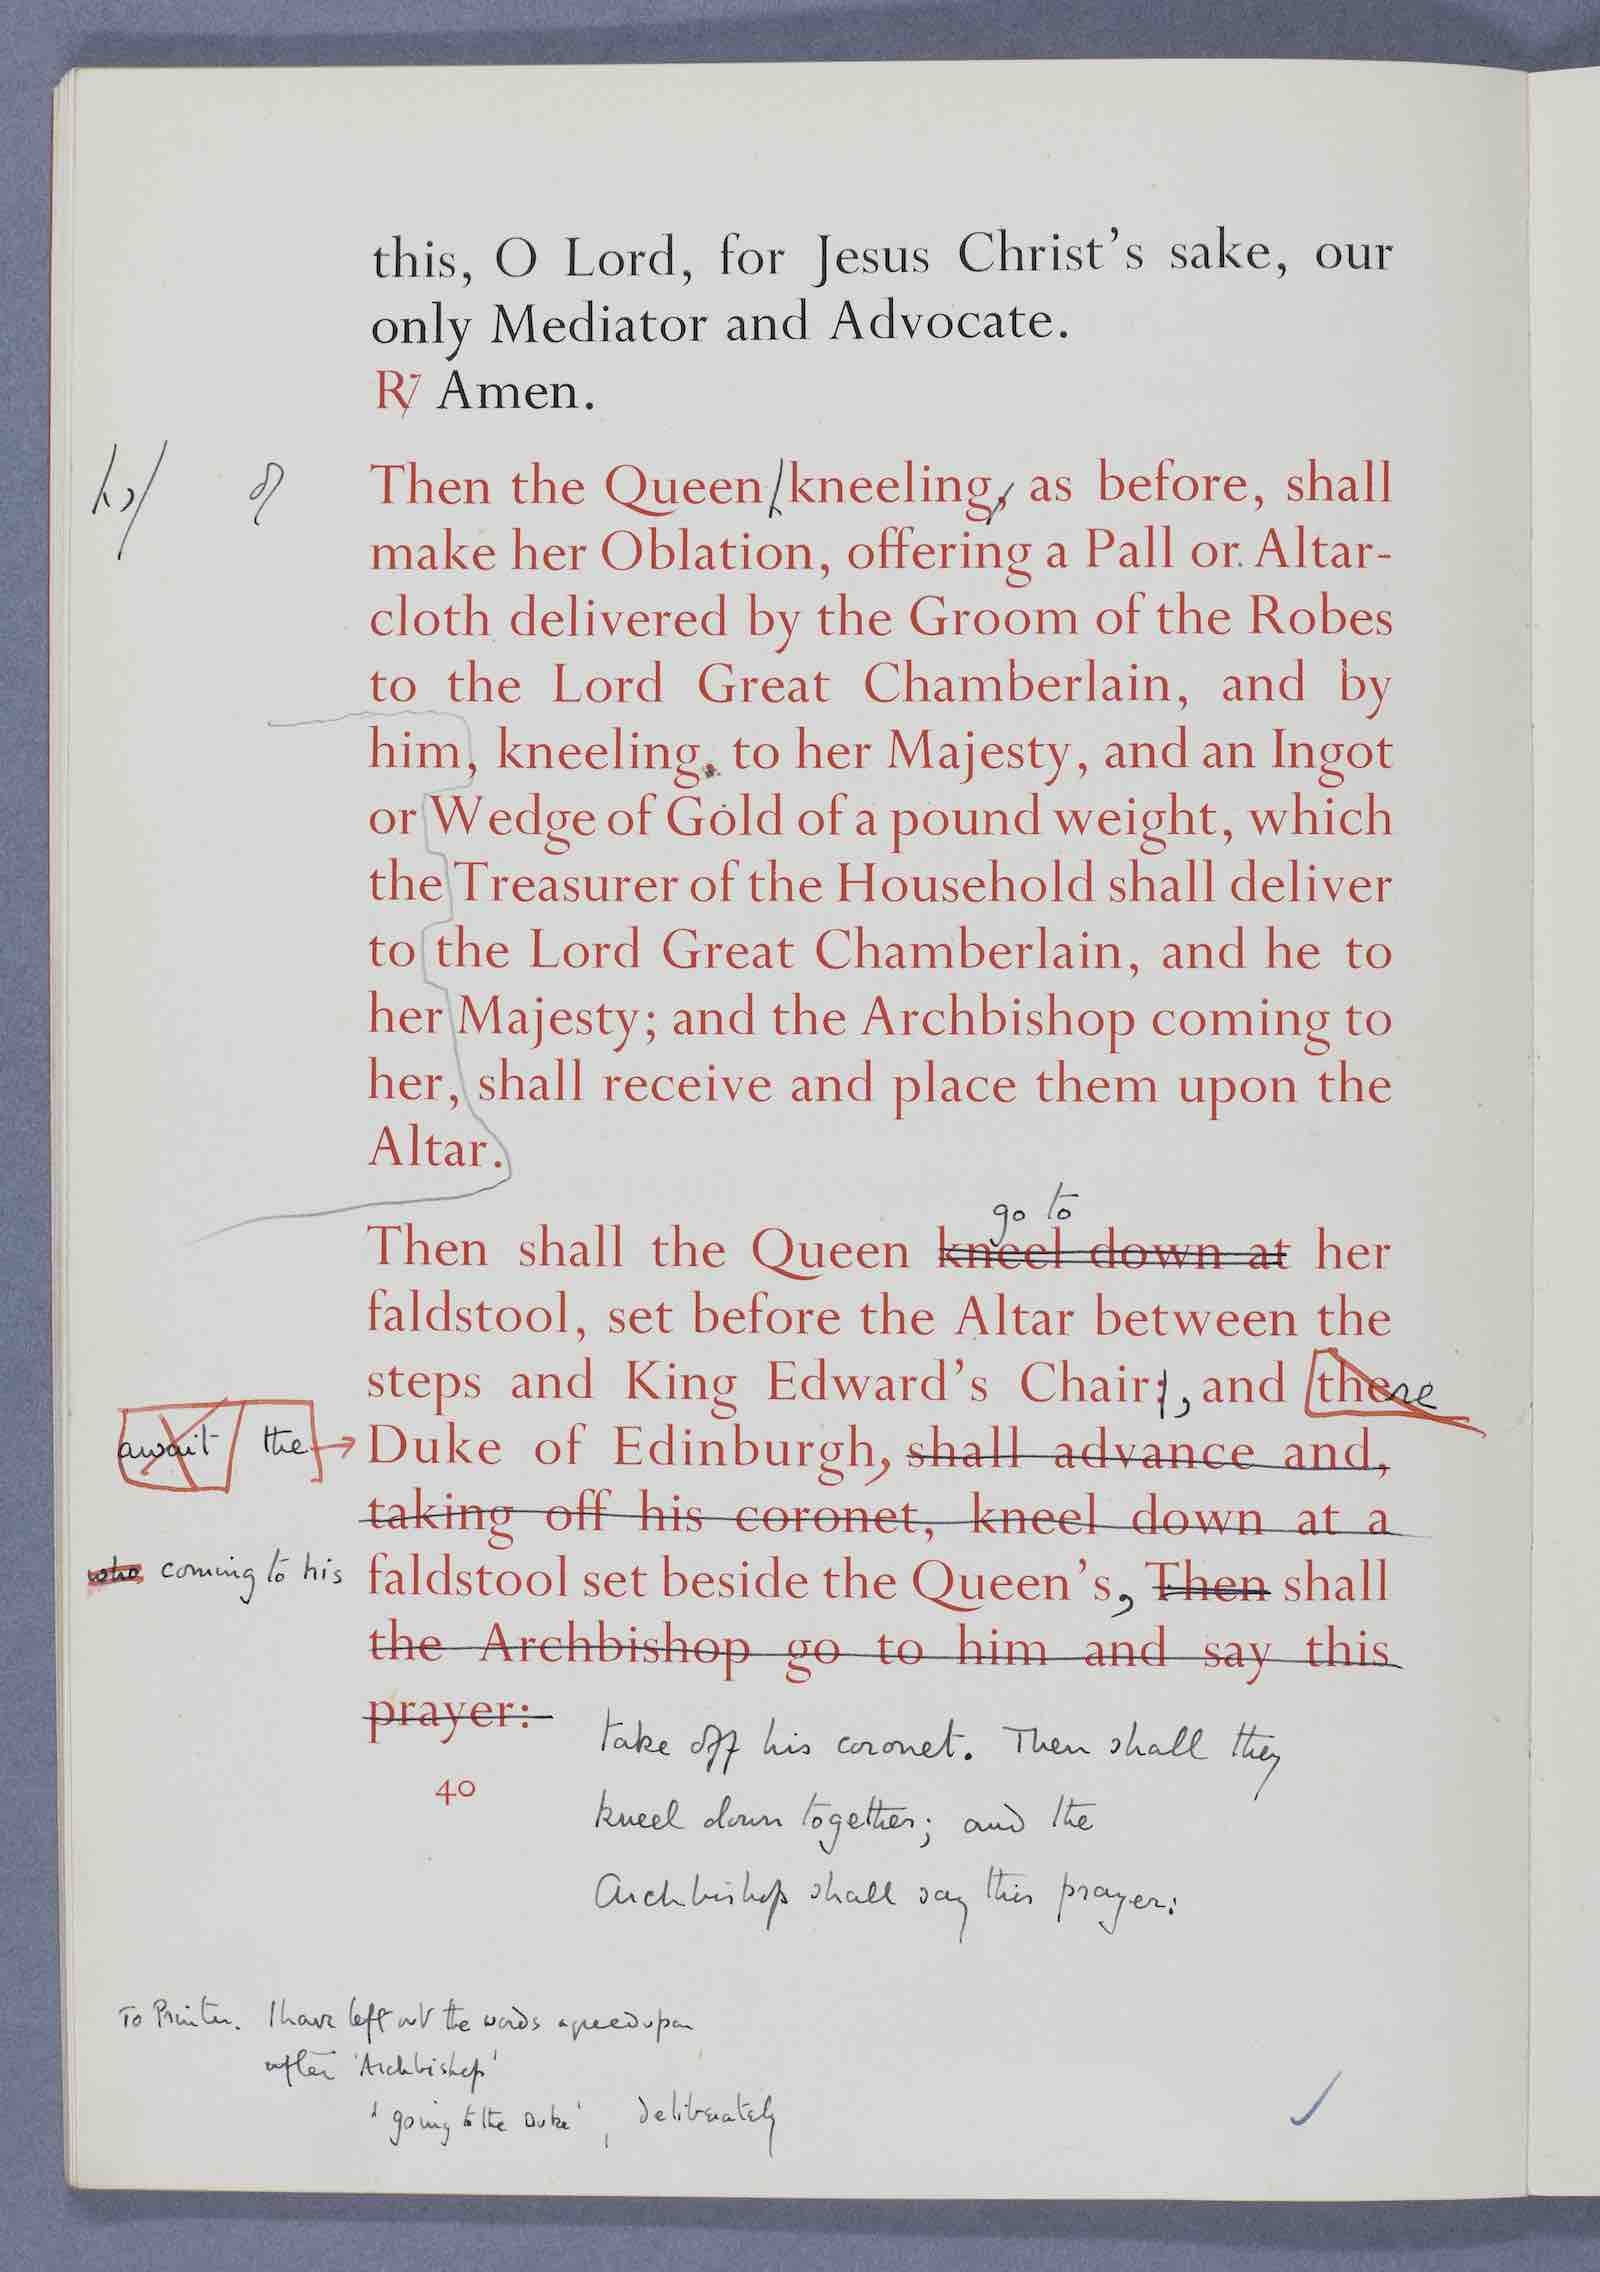 this, O Lord, for Jesus Christ's sake, our
only Mediator and Advocate.
R℣ Amen.
Then the Queen kneeling, as before, shall
make her Oblation, offering a Pall or Altar-
cloth delivered by the Groom of the Robes
to the Lord Great Chamberlain, and by
him, kneeling, to her Majesty, and an Ingot
or Wedge of Gold of a pound weight, which
the Treasurer of the Household shall deliver
to the Lord Great Chamberlain, and he to
her Majesty; and the Archbishop coming to
her, shall receive and place them upon the
Altar.
go to
Then shall the Queen kneel down at her
faldstool, set before the Altar between the
steps and King Edward's Chair; , and there
await the Duke of Edinburgh, shall advance and,
taking off his coronet, kneel down at a
who coming to his faldstool set beside the Queen's, Then shall
the Archbishop go to him and say this
prayer:
take off his coronet. Then shall they
40
kneel down together; and the
Archbishop shall say this prayer:
To Printer. I have left out the words agreed upon
after 'Archbishop'
'going to the Duke', deliberately